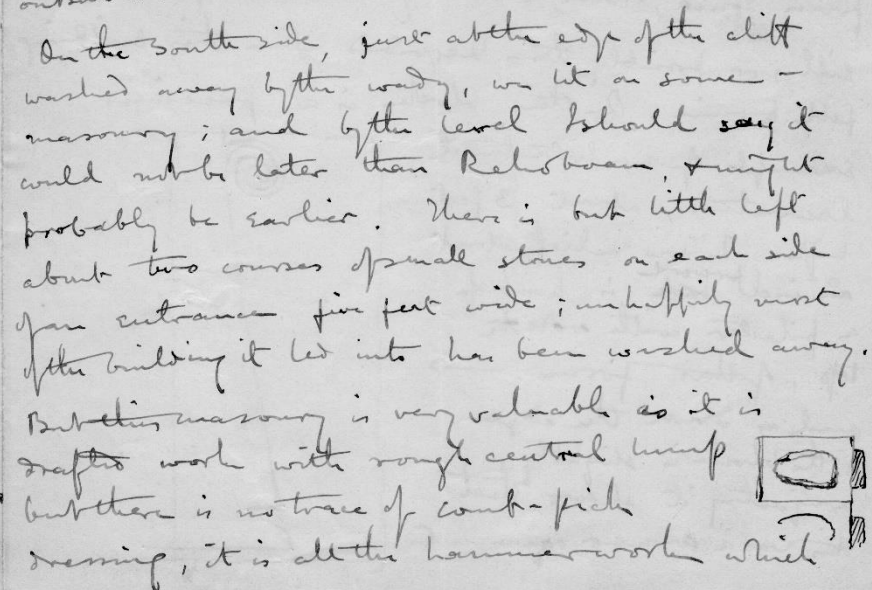 On the South side, just at the edge of the cliff
washed away by the wady, we lit on some
masonry; and by the level I should say it
could not be later than Rehoboam, & might
probably be earlier. There is but little left
about two courses of small stones on each side
of an entrance five feet wide; unhappily most
of the building it led into has been washed away.
But this masonry is very valuable as it is
drafted work with rough central lump
but there is no trace of comb-pick
dressing, it is all the hammerwork which